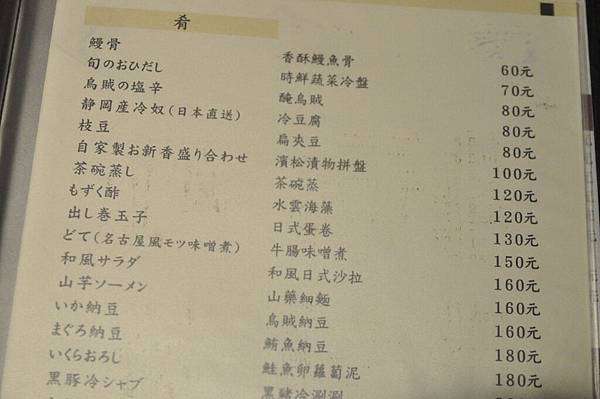 肴
鰻骨 香酥鰻魚骨 60元
旬のおひだし 時鮮蔬菜冷盤 70元
烏賊の塩辛 醃烏賊 80元
静岡産冷奴(日本直送) 冷豆腐 80元
枝豆 扁夾豆 80元
自家製お新香盛り合わせ 濱松漬物拼盤 100元
茶碗蒸し 茶碗蒸 120元
もずく酢 水雲海藻 120元
出し巻玉子 日式蛋卷 130元
どて(名古屋風モツ味噌煮) 牛腸味噌煮 150元
和風サラダ 和風日式沙拉 160元
山芋ソーメン 山藥細麵 160元
いか納豆 烏賊納豆 160元
まぐろ納豆 鮪魚納豆 180元
いくらおろし 鮭魚卵蘿蔔泥
黒豚冷シャブ 黑豬冷涮涮